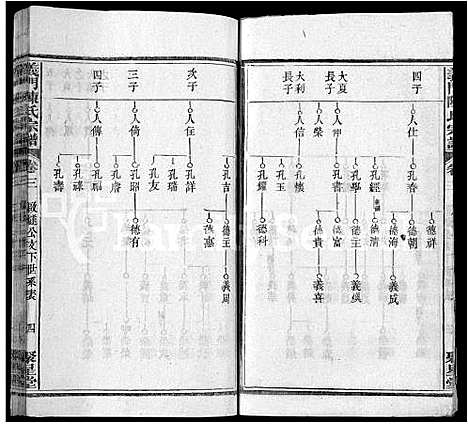 義門陳氏宗譜
四子
人仕
孔春
德祥
德朝
德海
義成
大夏長子
人翀
孔經
德清
孔學
德主
義奐
德富
人榮
德貴
義喜
大利長子
人信
孔玉
孔耀
德科
次子
人任
孔吉
德主
義周
德惠
孔祥
孔瑞
孔友
三子
人傳
孔昭
德有
孔唐
四子
人儔
孔祿
孔壽
義門陳氏宗譜
卷三
公攴下世系表
四
聚星堂
聚星堂